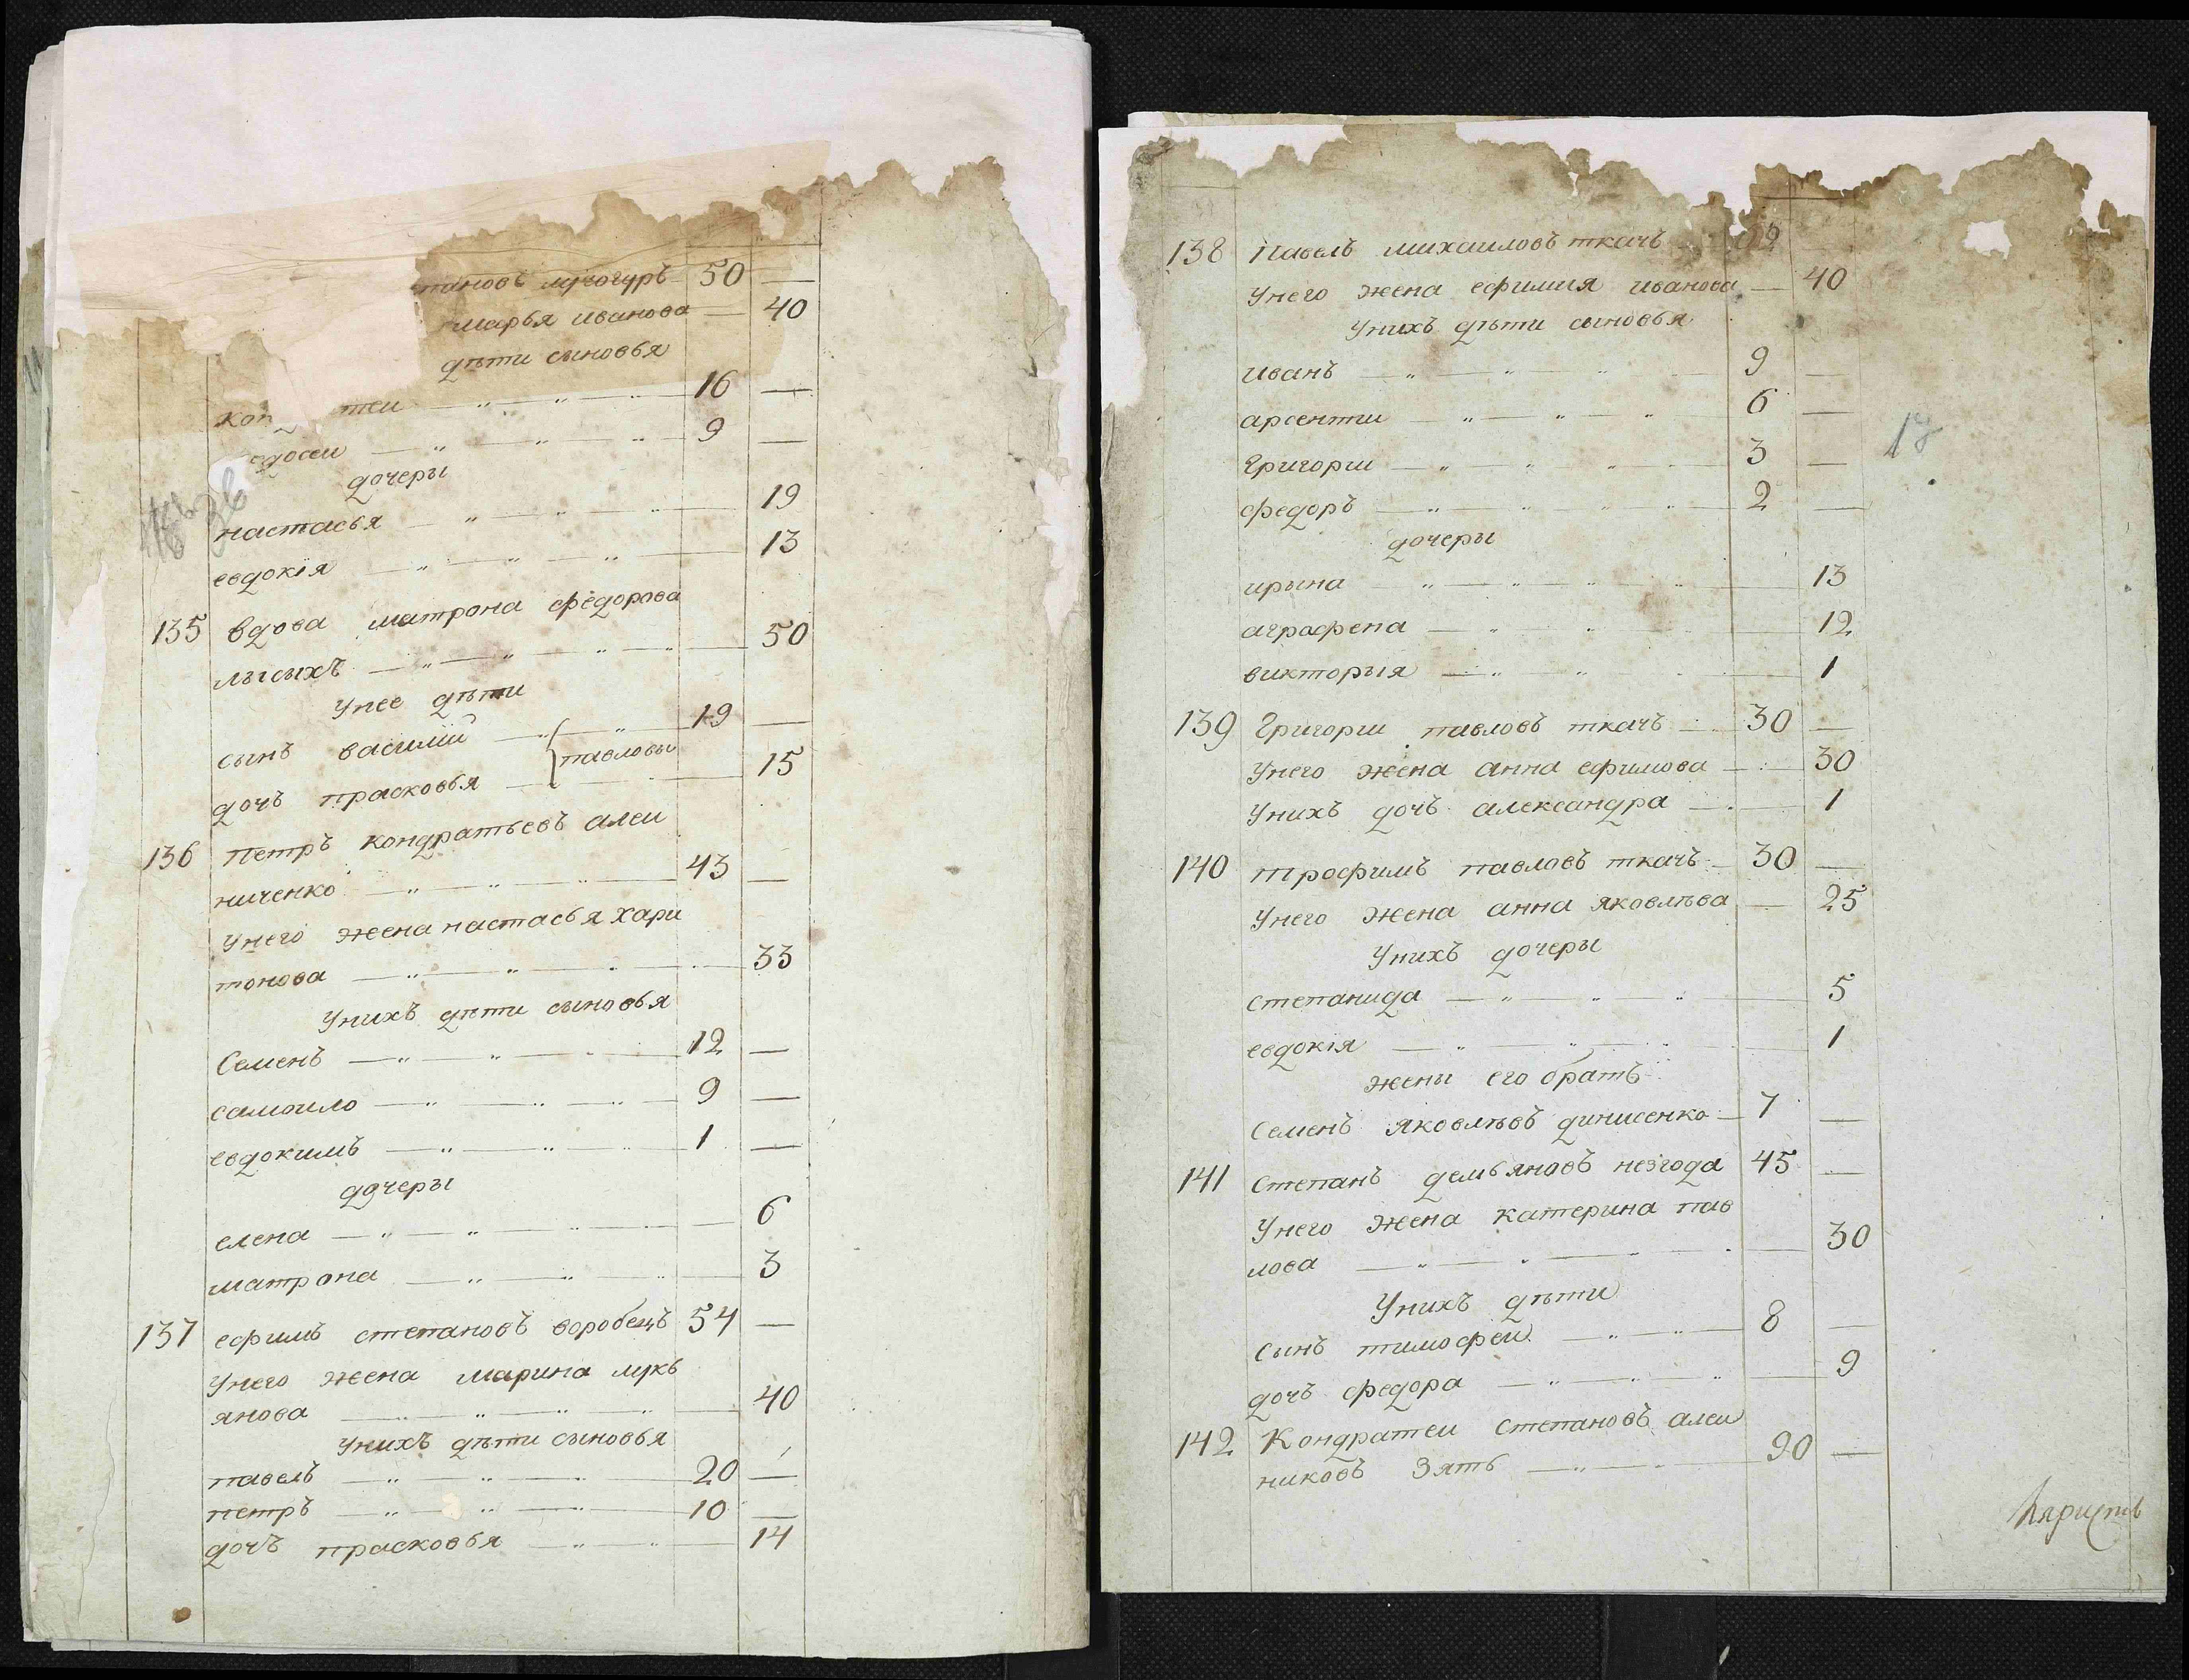 пановъ мукогуръ 50 —
марья иванова — 40
дѣти сыновья
кон теи 16 —
едосеи 9 —
дочеры
настасья 19
евдокія 13
135 вдова матрона федорова
лысыхъ 50
Унее дѣти
сынъ василій 19 —
павловы
дочъ прасковья 15
136 Петръ кондратьевъ алеи
ниченко 43 —
Унего жена настасья хари
тонова 33
Унихъ дѣти сыновья
Семенъ 12 —
самоило 9 —
евдокимъ 1 —
дочеры
елена 6
матрона 3
137 ефимъ степановъ воробецъ 54 —
Унего жена марина лукь
янова 40
Унихъ дѣти сыновья
павелъ 20 —
петръ 10 —
дочъ прасковья 14
138 Павелъ михаиловъ ткачъ
Унего жена ефимия иванова — 40
Унихъ дѣти сыновья
иванъ 9 —
арсентии 6 —
Григории 3 —
федоръ 2 —
дочеры
ирына 13
аграфена 12
викторыя 1
139 Григории павловъ ткачъ 30 —
Унего жена анна ефимова 30
Унихъ дочъ александра 1
140 трофимъ павловъ ткачъ 30 —
Унего жена анна яковлѣва — 25
Унихъ дочеры
степанида 5
евдокія 1
жены его братъ
Семенъ яковлѣвъ динисенко 7 —
141 степанъ демьяновъ незгода 45 —
Унего жена катерина пав
лова 30
Унихъ дѣти
сынъ тимофеи 8 —
дочъ федора 9
142 Кондратеи степановъ алеи
никовъ зять 20 —